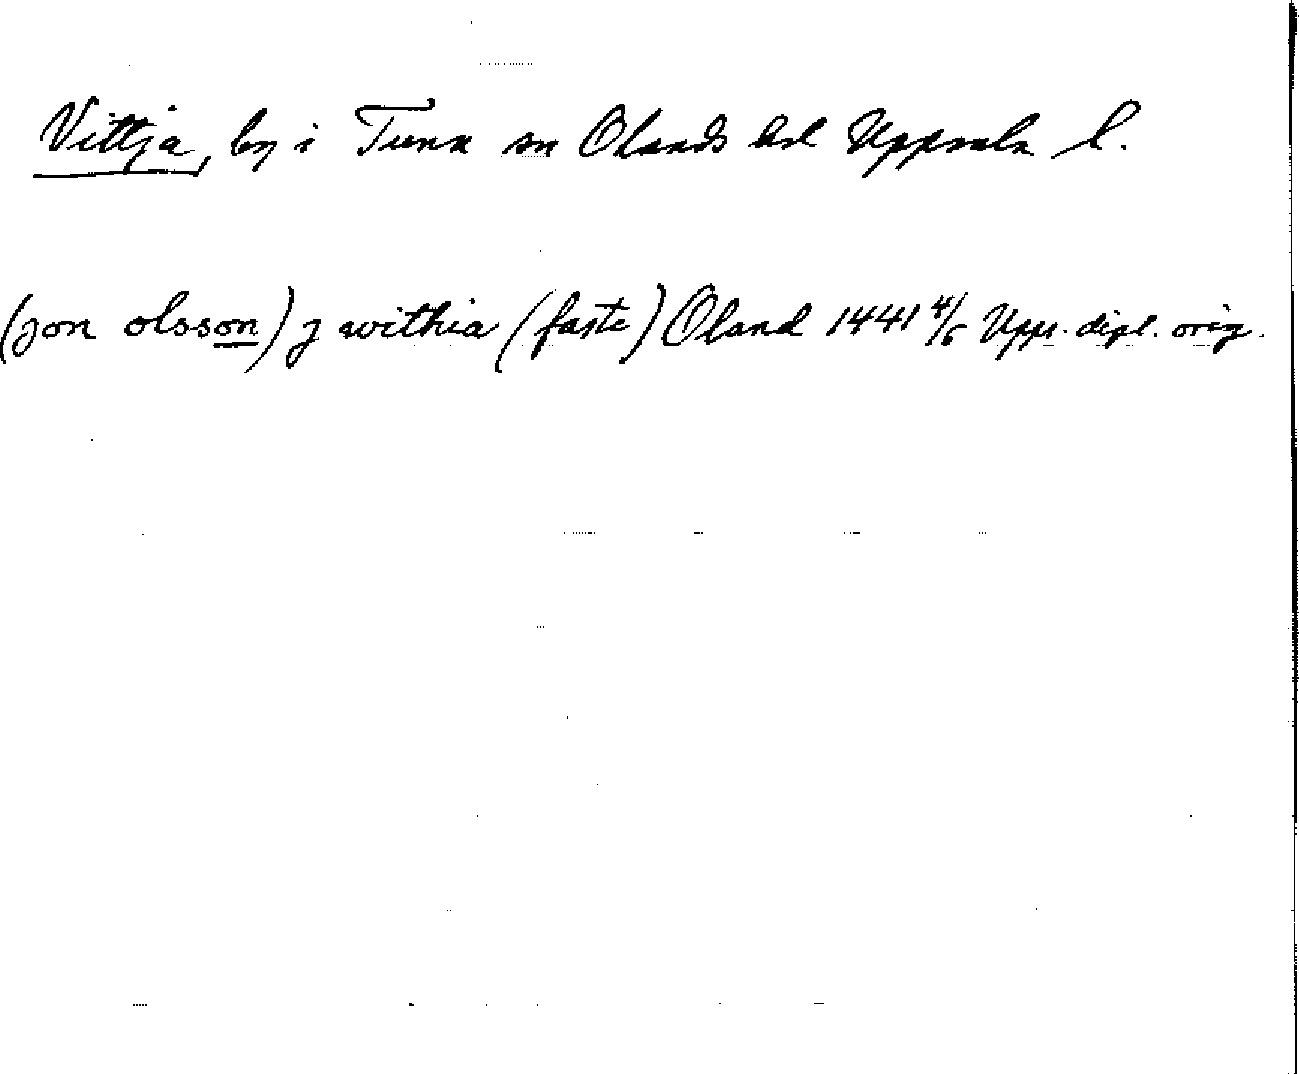 Vittja, by i Tuna sn Olands hd Uppsala l.
(jon olsson) j withia (faste) Oland 1441 4/6 Upps. dipl. orig.